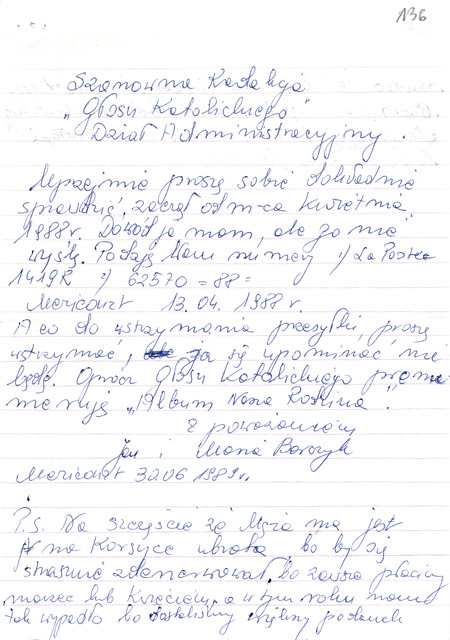 136
Szanowna Redakcja
„Głosu Katolickiego"
Dział Administracyjny.
Uprzejmie proszę sobie dokładnie
sprawdzić, zacząć od m-ca kwietnia
1988r. Dowód ja mam, ale go nie
wyślę. Podaję Wam numery 1) La Postea
1419R 2) 62570 = 88 =
Mericourt 13.04. 1988 r.
A co do wstrzymania przesyłki, proszę
wstrzymać, ja się upominać nie
będę. Oprócz Głosu Katolickiego
"Album Nasza Rodzina".
Z poważaniem
Jan i Maria
Mericourt 30.06 1989r.
P.S. Na szczęście że Męża ma jest
na Korsyce u brata, bo by się
strasznie zdenerwował, bo zawsze płacimy
marzec lub kwiecień, a w tym roku nam
tak wypadło bo